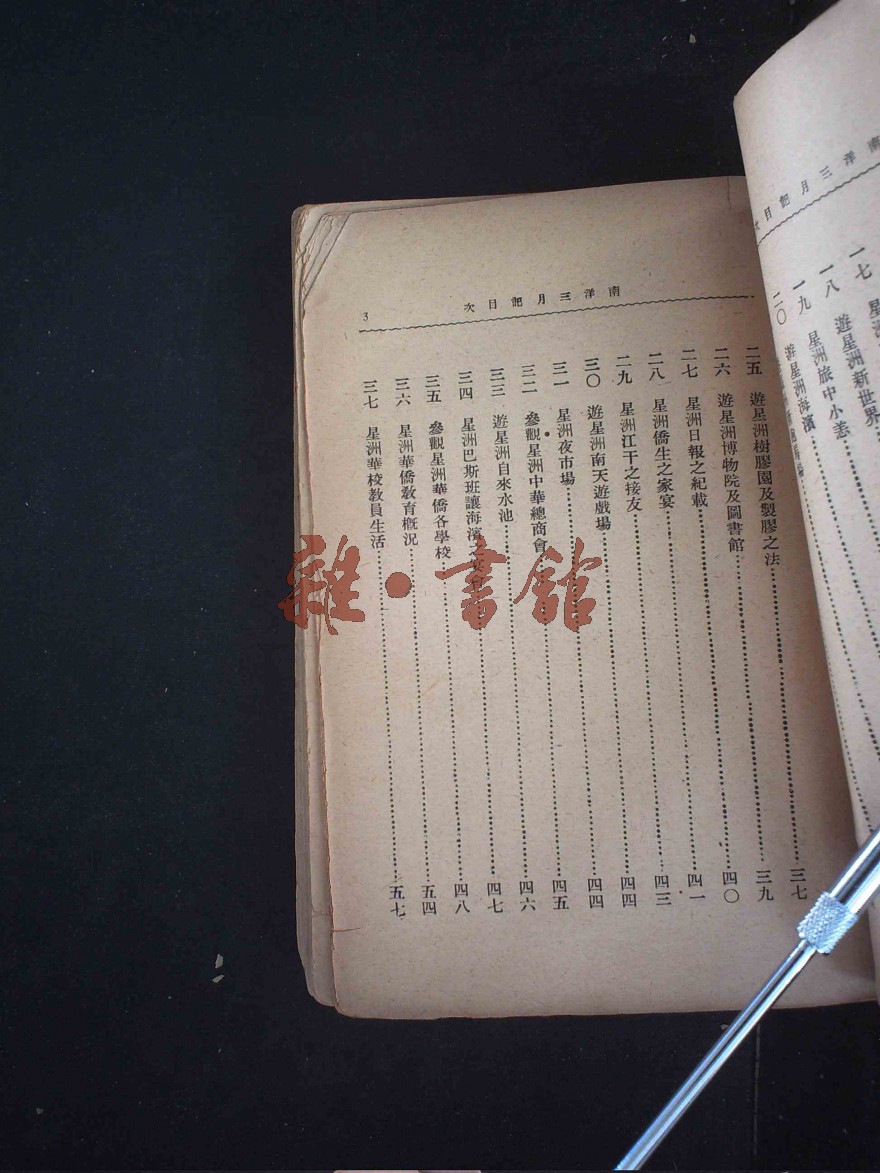 南洋三月記目次
一七
一八 遊星洲新世界
一九 星洲旅中小恙
二〇 遊星洲海濱
南洋三月記目次 3
二五 遊星洲樹膠園及製膠之法……三七
二六 遊星洲博物院及圖書館……三九
二七 星洲日報之紀載……四〇
二八 星洲僑生之家宴……四一
二九 星洲江干之接友……四三
三〇 遊星洲南天遊戲場……四四
三一 星洲夜市場……四四
三二 參觀星洲中華總商會……四五
三三 遊星洲自來水池……四六
三四 星洲巴斯班讓海濱之宴會……四七
三五 參觀星洲華僑各學校……四八
三六 星洲華僑教育概況……五四
三七 星洲華校教員生活……五七
雜·書館